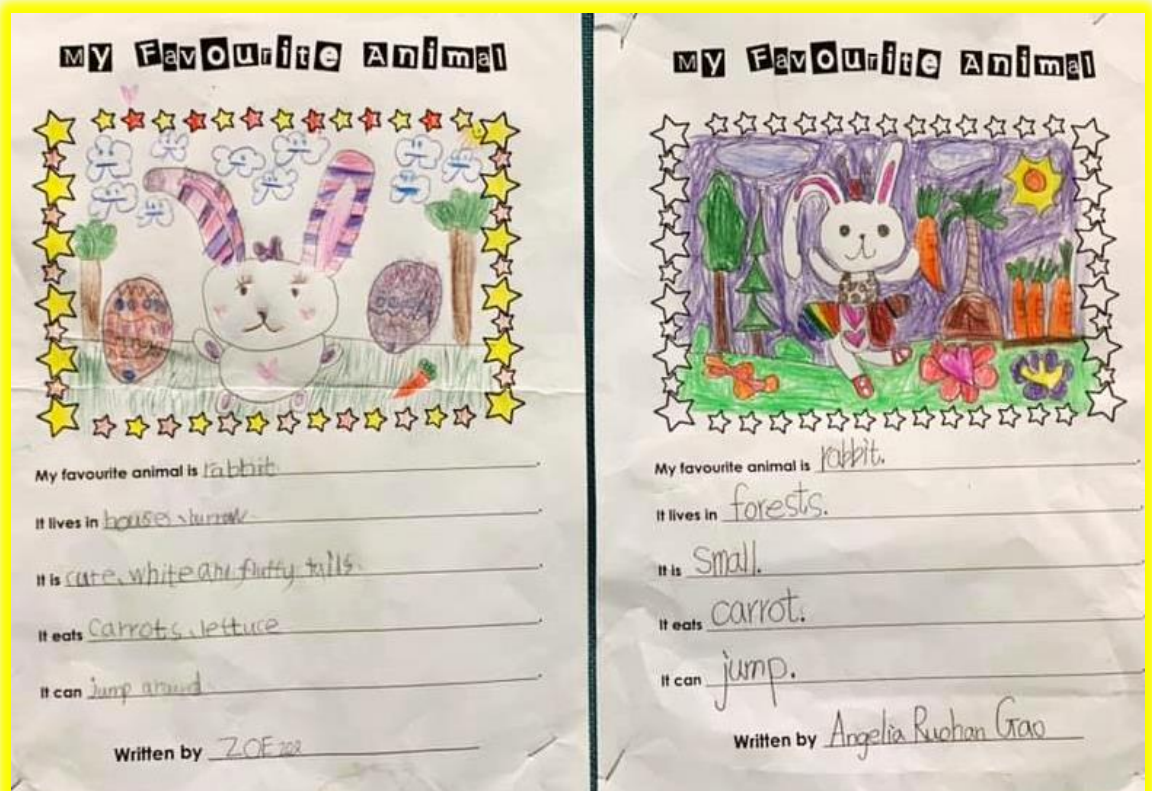 My Favourite Animal
My favourite animal is rabbit.
It lives in house, burrow.
It is cute, white and fluffy tails.
It eats carrots, lettuce.
It can jump around.
Written by ZOE
My Favourite Animal
My favourite animal is rabbit.
It lives in forests.
It is small.
It eats carrot.
It can jump.
Written by Angelia Ruohan Gao